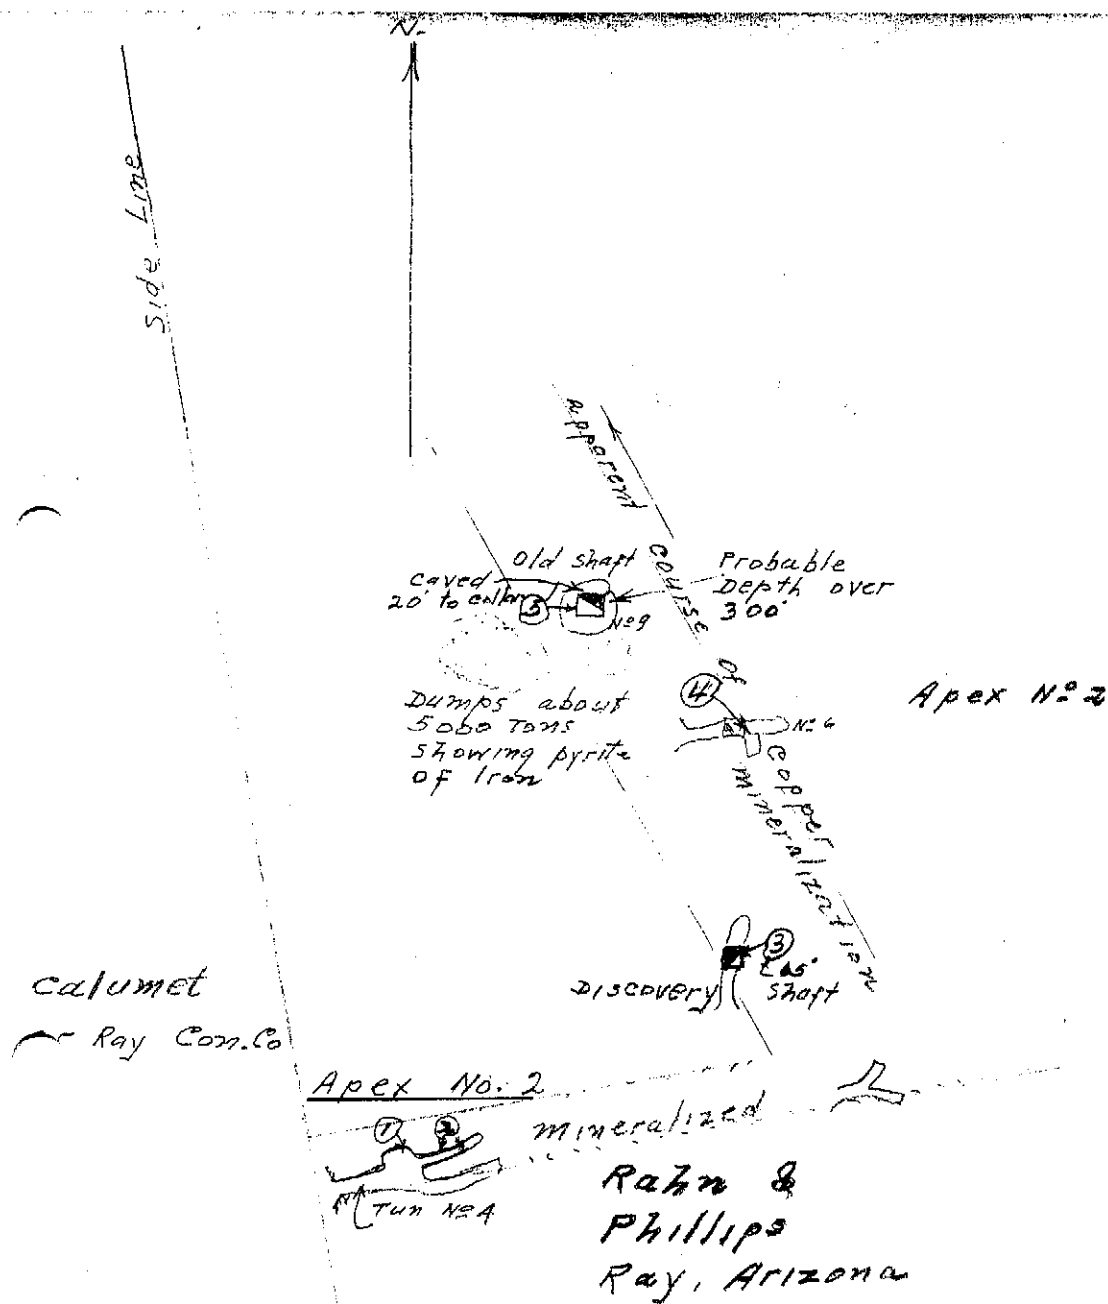 N.
Side Line
Apparent course of copper mineralization
Old shaft
caved
20' to collar
5
No 9
Probable
Depth over
300'
Dumps about
5000 Tons
showing pyrite
of Iron
4
No 6
Apex No 2
3
65'
shaft
Discovery
Calumet
Ray Con. Co
Apex No. 2
1
2
mineralized
Tun No 4
Rahn &
Phillips
Ray, Arizona